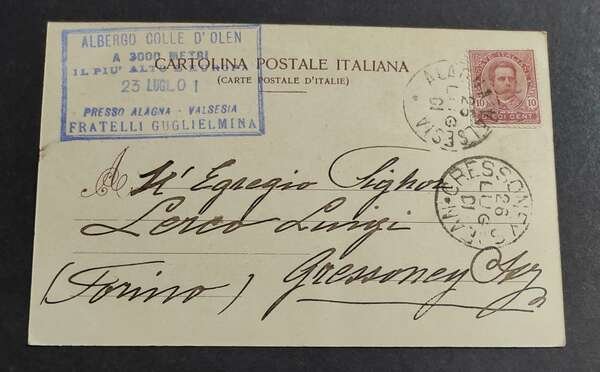 ALBERGO COLLE D'OLEN
A 3000 METRI
IL PIU' ALTO
23 LUGLO 1
PRESSO ALAGNA - VALSESIA
FRATELLI GUGLIELMINA
CARTOLINA POSTALE ITALIANA
(CARTE POSTALE D'ITALIE)
POSTE ITALIANE
10 10
DIECI CENT
ALAGNA VALSESIA
25
LUG
01
GRESSONEY S. JEAN
26
LUG
01
All' Egregio Sighor
Lerco Luigi
(Torino) Gressoney